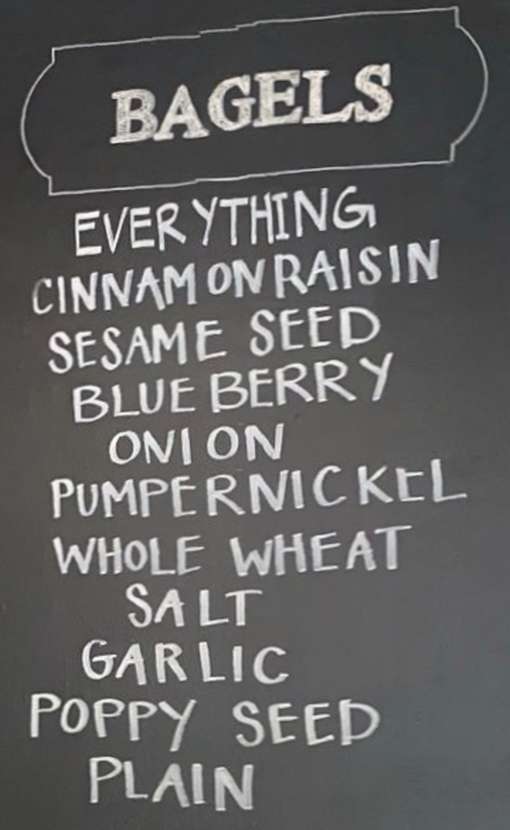 BAGELS
EVERYTHING
CINNAMON RAISIN
SESAME SEED
BLUEBERRY
ONION
PUMPERNICKEL
WHOLE WHEAT
SALT
GARLIC
POPPY SEED
PLAIN